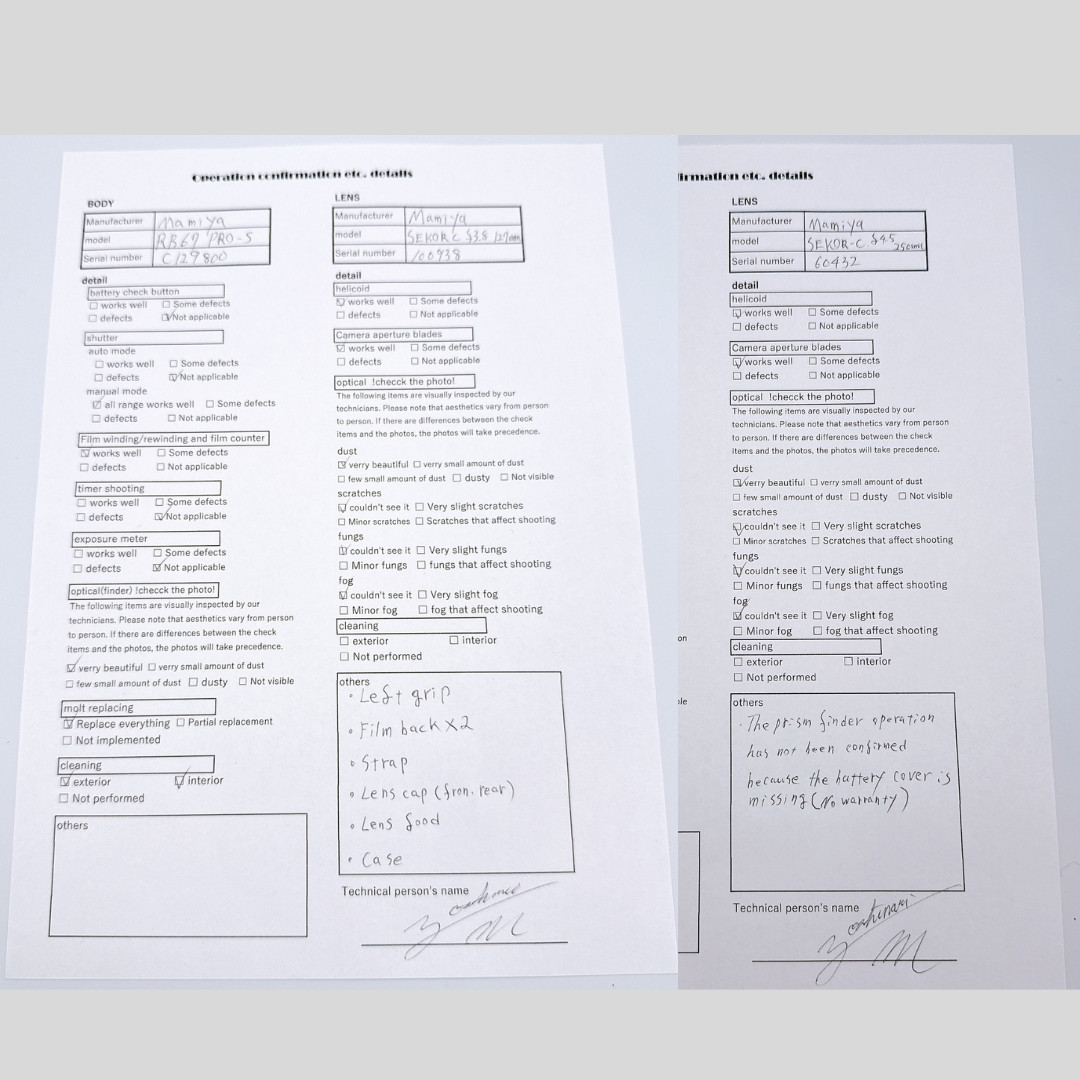 Operation confirmation etc. details
BODY
Manufacturer Mamiya
model RB67 PRO-S
Serial number C129800
detail
battery check button
☐ works well ☐ Some defects
☐ defects ☑ Not applicable
shutter
auto mode
☐ works well ☐ Some defects
☐ defects ☑ Not applicable
manual mode
☑ all range works well ☐ Some defects
☐ defects ☐ Not applicable
Film winding/rewinding and film counter
☑ works well ☐ Some defects
☐ defects ☐ Not applicable
timer shooting
☐ works well ☐ Some defects
☐ defects ☑ Not applicable
exposure meter
☐ works well ☐ Some defects
☐ defects ☑ Not applicable
optical(finder) !checck the photo!
The following items are visually inspected by our
technicians. Please note that aesthetics vary from person
to person. If there are differences between the check
items and the photos, the photos will take precedence.
☑ verry beautiful ☐ verry small amount of dust
☐ few small amount of dust ☐ dusty ☐ Not visible
molt replacing
☑ Replace everything ☐ Partial replacement
☐ Not implemented
cleaning
☑ exterior ☑ interior
☐ Not performed
others
LENS
Manufacturer Mamiya
model SEKOR C f3.8 127mm
Serial number 100938
detail
helicoid
☑ works well ☐ Some defects
☐ defects ☐ Not applicable
Camera aperture blades
☑ works well ☐ Some defects
☐ defects ☐ Not applicable
optical !checck the photo!
The following items are visually inspected by our
technicians. Please note that aesthetics vary from person
to person. If there are differences between the check
items and the photos, the photos will take precedence.
dust
☑ verry beautiful ☐ verry small amount of dust
☐ few small amount of dust ☐ dusty ☐ Not visible
scratches
☑ couldn't see it ☐ Very slight scratches
☐ Minor scratches ☐ Scratches that affect shooting
fungs
☑ couldn't see it ☐ Very slight fungs
☐ Minor fungs ☐ fungs that affect shooting
fog
☑ couldn't see it ☐ Very slight fog
☐ Minor fog ☐ fog that affect shooting
cleaning
☐ exterior ☐ interior
☐ Not performed
others
• Left grip
• Film back X2
• Strap
• Lens cap (fron. rear)
• Lens food
• Case
Technical person's name
irmation etc. details
on
ble
LENS
Manufacturer Mamiya
model SEKOR-C f4.5 250mm
Serial number 60432
detail
helicoid
☑ works well ☐ Some defects
☐ defects ☐ Not applicable
Camera aperture blades
☑ works well ☐ Some defects
☐ defects ☐ Not applicable
optical !checck the photo!
The following items are visually inspected by our
technicians. Please note that aesthetics vary from person
to person. If there are differences between the check
items and the photos, the photos will take precedence.
dust
☑ verry beautiful ☐ verry small amount of dust
☐ few small amount of dust ☐ dusty ☐ Not visible
scratches
☑ couldn't see it ☐ Very slight scratches
☐ Minor scratches ☐ Scratches that affect shooting
fungs
☑ couldn't see it ☐ Very slight fungs
☐ Minor fungs ☐ fungs that affect shooting
fog
☑ couldn't see it ☐ Very slight fog
☐ Minor fog ☐ fog that affect shooting
cleaning
☐ exterior ☐ interior
☐ Not performed
others
• The prism finder operation
has not been confirmed
because the battery cover is
missing (No warranty)
Technical person's name